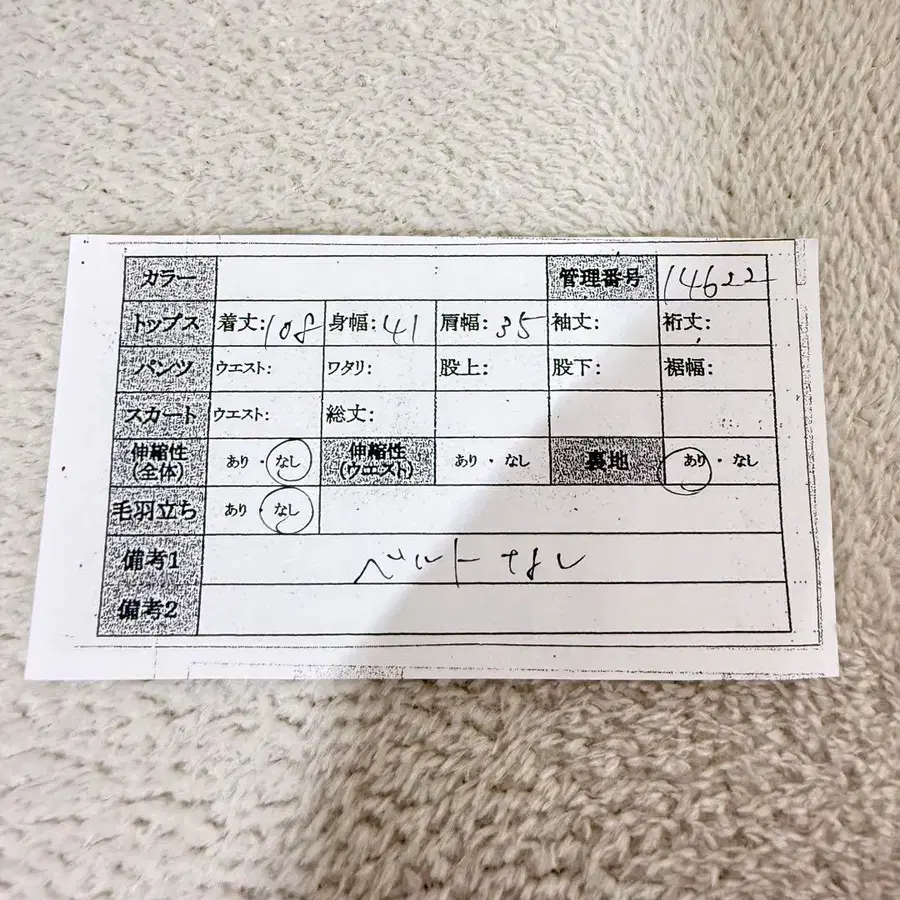 カラー 管理番号 14622
トップス 着丈:108 身幅:41 肩幅:35 袖丈: 裄丈:
パンツ ウエスト: ワタリ: 股上: 股下: 裾幅:
スカート ウエスト: 総丈:
伸縮性(全体) あり・なし 伸縮性(ウエスト) あり・なし 裏地 あり・なし
毛羽立ち あり・なし
備考1 ベルトなし
備考2